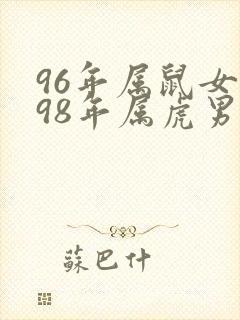 96年属鼠女
98年属虎男
蘇巴什